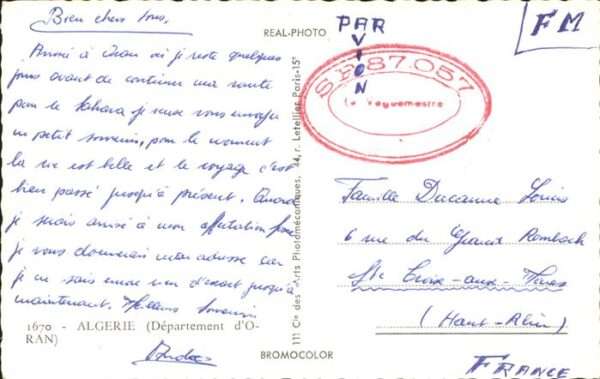 Bien chers tous,
Arrivé à Oran où je reste quelques
jours avant de continuer ma route
pour le Sahara je veux vous envoyer
un petit souvenir, pour le moment
la vie est belle et le voyage s'est
bien passé jusqu'à présent. Quand
je serais arrivé à mon affectation fixe
je vous donnerais mon adresse car
je ne sais encore rien d'exact jusqu'à
maintenant. Meilleurs souvenirs
1670 - ALGERIE (Département d'O-
RAN)
REAL-PHOTO
111 Cie des Arts Photomécaniques, 44, r. Letellier Paris-15e
BROMOCOLOR
PAR
AVION
FM
S.P. 87.057
Le Vaguemestre
Famille Ducanne Louis
6 rue du Grand Rombach
Ste Croix-aux-Mines
(Haut-Rhin)
FRANCE